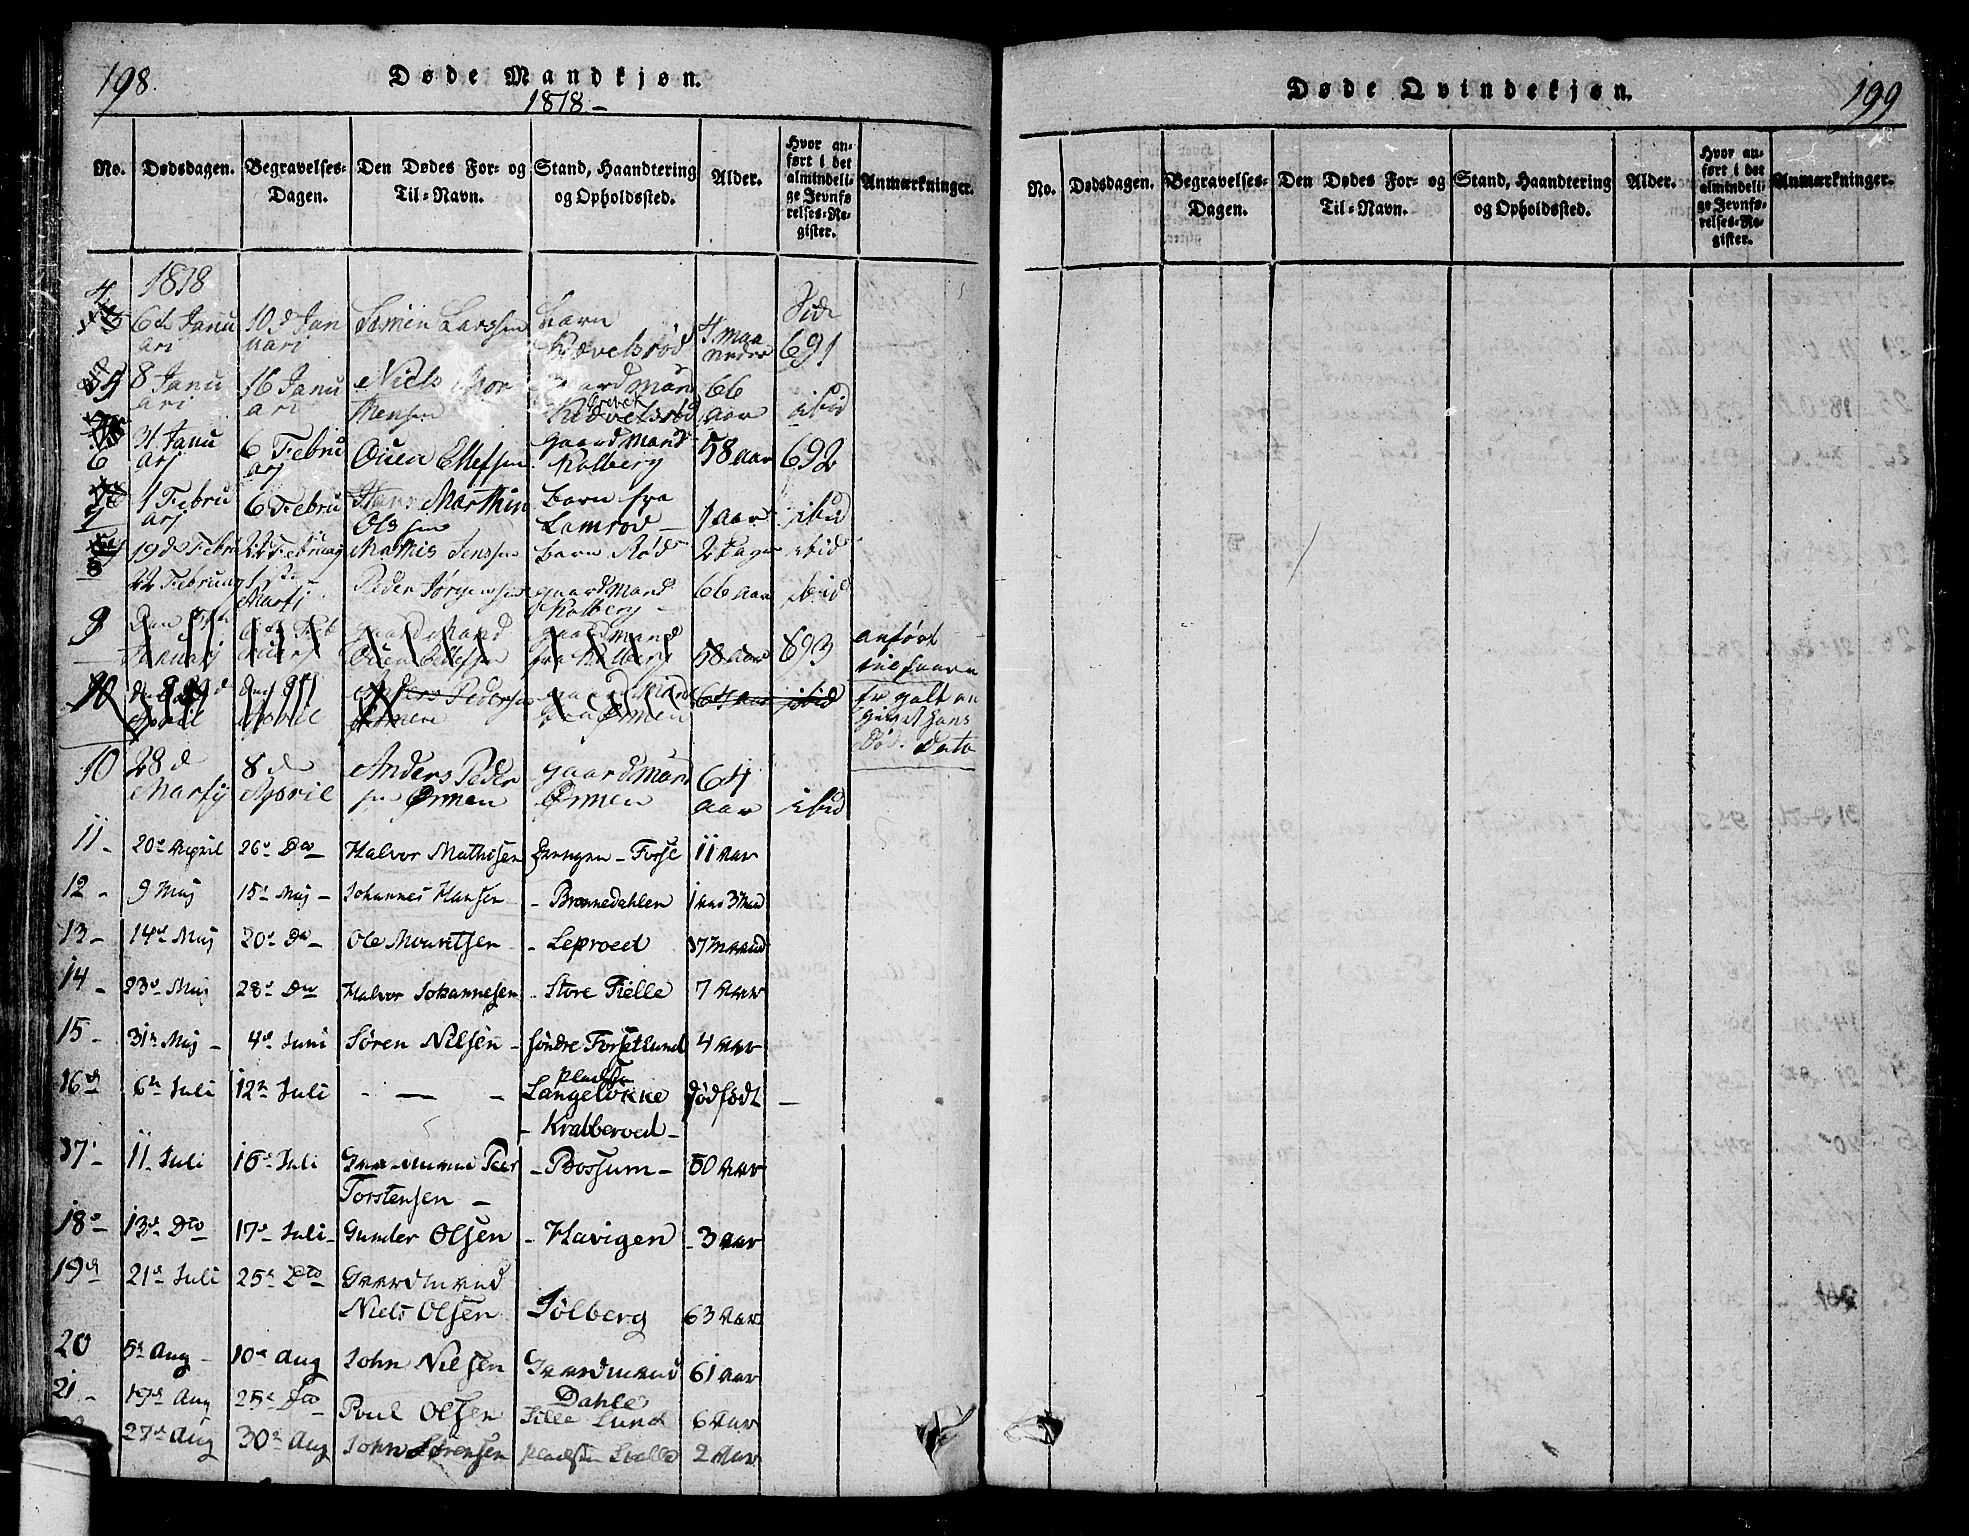 198.
Døde Mandkjøn.
1818-
No. Dødsdagen. Begravelses-Dagen. Den Dødes For- og Til-Navn. Stand, Haandtering og Opholdssted. Alder. Hvor anført i det almindelige Jevnførelses-Register. Anmærkninger.
1818
4 6te Januari 10d Januari Larssen barn Kiøvelsrød 4 maaneder Side 691
8 Januari 16 Januari Niels gaardmand 66 aar ibid
6 31 Januarj 6 Februarj Ouen Ellefsen gaardmand Kolberg 58 aar 692
7 1 Februarj 6 Febru Hans Marthin Olssen barn fra Lamrod 1 aar ibid
8 19d Febr 22 Februarj Mathis Jenssen barn Rød 2 dager ibid
9 22 Februarj 1ste Martj Peder Jørgensen gaardmand Kolberg 66 aar ibid
Januarj gaardmand Ouen Ellefsen gaardmand fra Kolberg 58 aar 693 anført
10 April April Anders Pedersen Ørmen gaardmand Ørmen 64 aar ibid er galt angivet hans Død. Dato
10 28d Martj 8d April Anders Pedersen Ørmen gaardmand Ørmen 64 aar ibid
11- 20d April 26d Do Halvor Mathisen Drengen - Forse 11 aar
12- 9 Maj 15d Maj- Johannes Hansen - Brønnedahlen 1 aar 3 Maa
13- 14d Maj 20d Do- Ole Mouritsen - Leproed 37 maand
14- 23d Maj 28d Do Halvor Johannesen - Store Fielle 7 aar
15- 31te Maj- 4d Juni Søren Nilsen - søndre Forsetlund 4 aar
16d 6te Juli 12te Juli - — - pladsen Langeløkke - Krabberoed- dødfødt -
17- 11 Juli 16d Juli Gaardmand Peer Torstensen - - Bossum- 50 aar
18d 13d Do 17d Juli- Gunder Olsen - Havigen - 3 aar
19d 21d Juli 25d Do Gaardmand Niels Olsen Solberg 63 aar
20 5te Aug- 10d Aug John Nilsen Gaardmand Dahle 61 aar
21- 19d Aug 25d Do Poul Olsen Lille Lund 6 aar
27d Aug 30d Aug John Sørensen pladsen 2 aar
Døde Qvindekjøn.
199
No. Dødsdagen. Begravelses-Dagen. Den Dødes For- og Til-Navn. Stand, Haandtering og Opholdssted. Alder. Hvor anført i det almindelige Jevnførelses-Register. Anmærkninger.